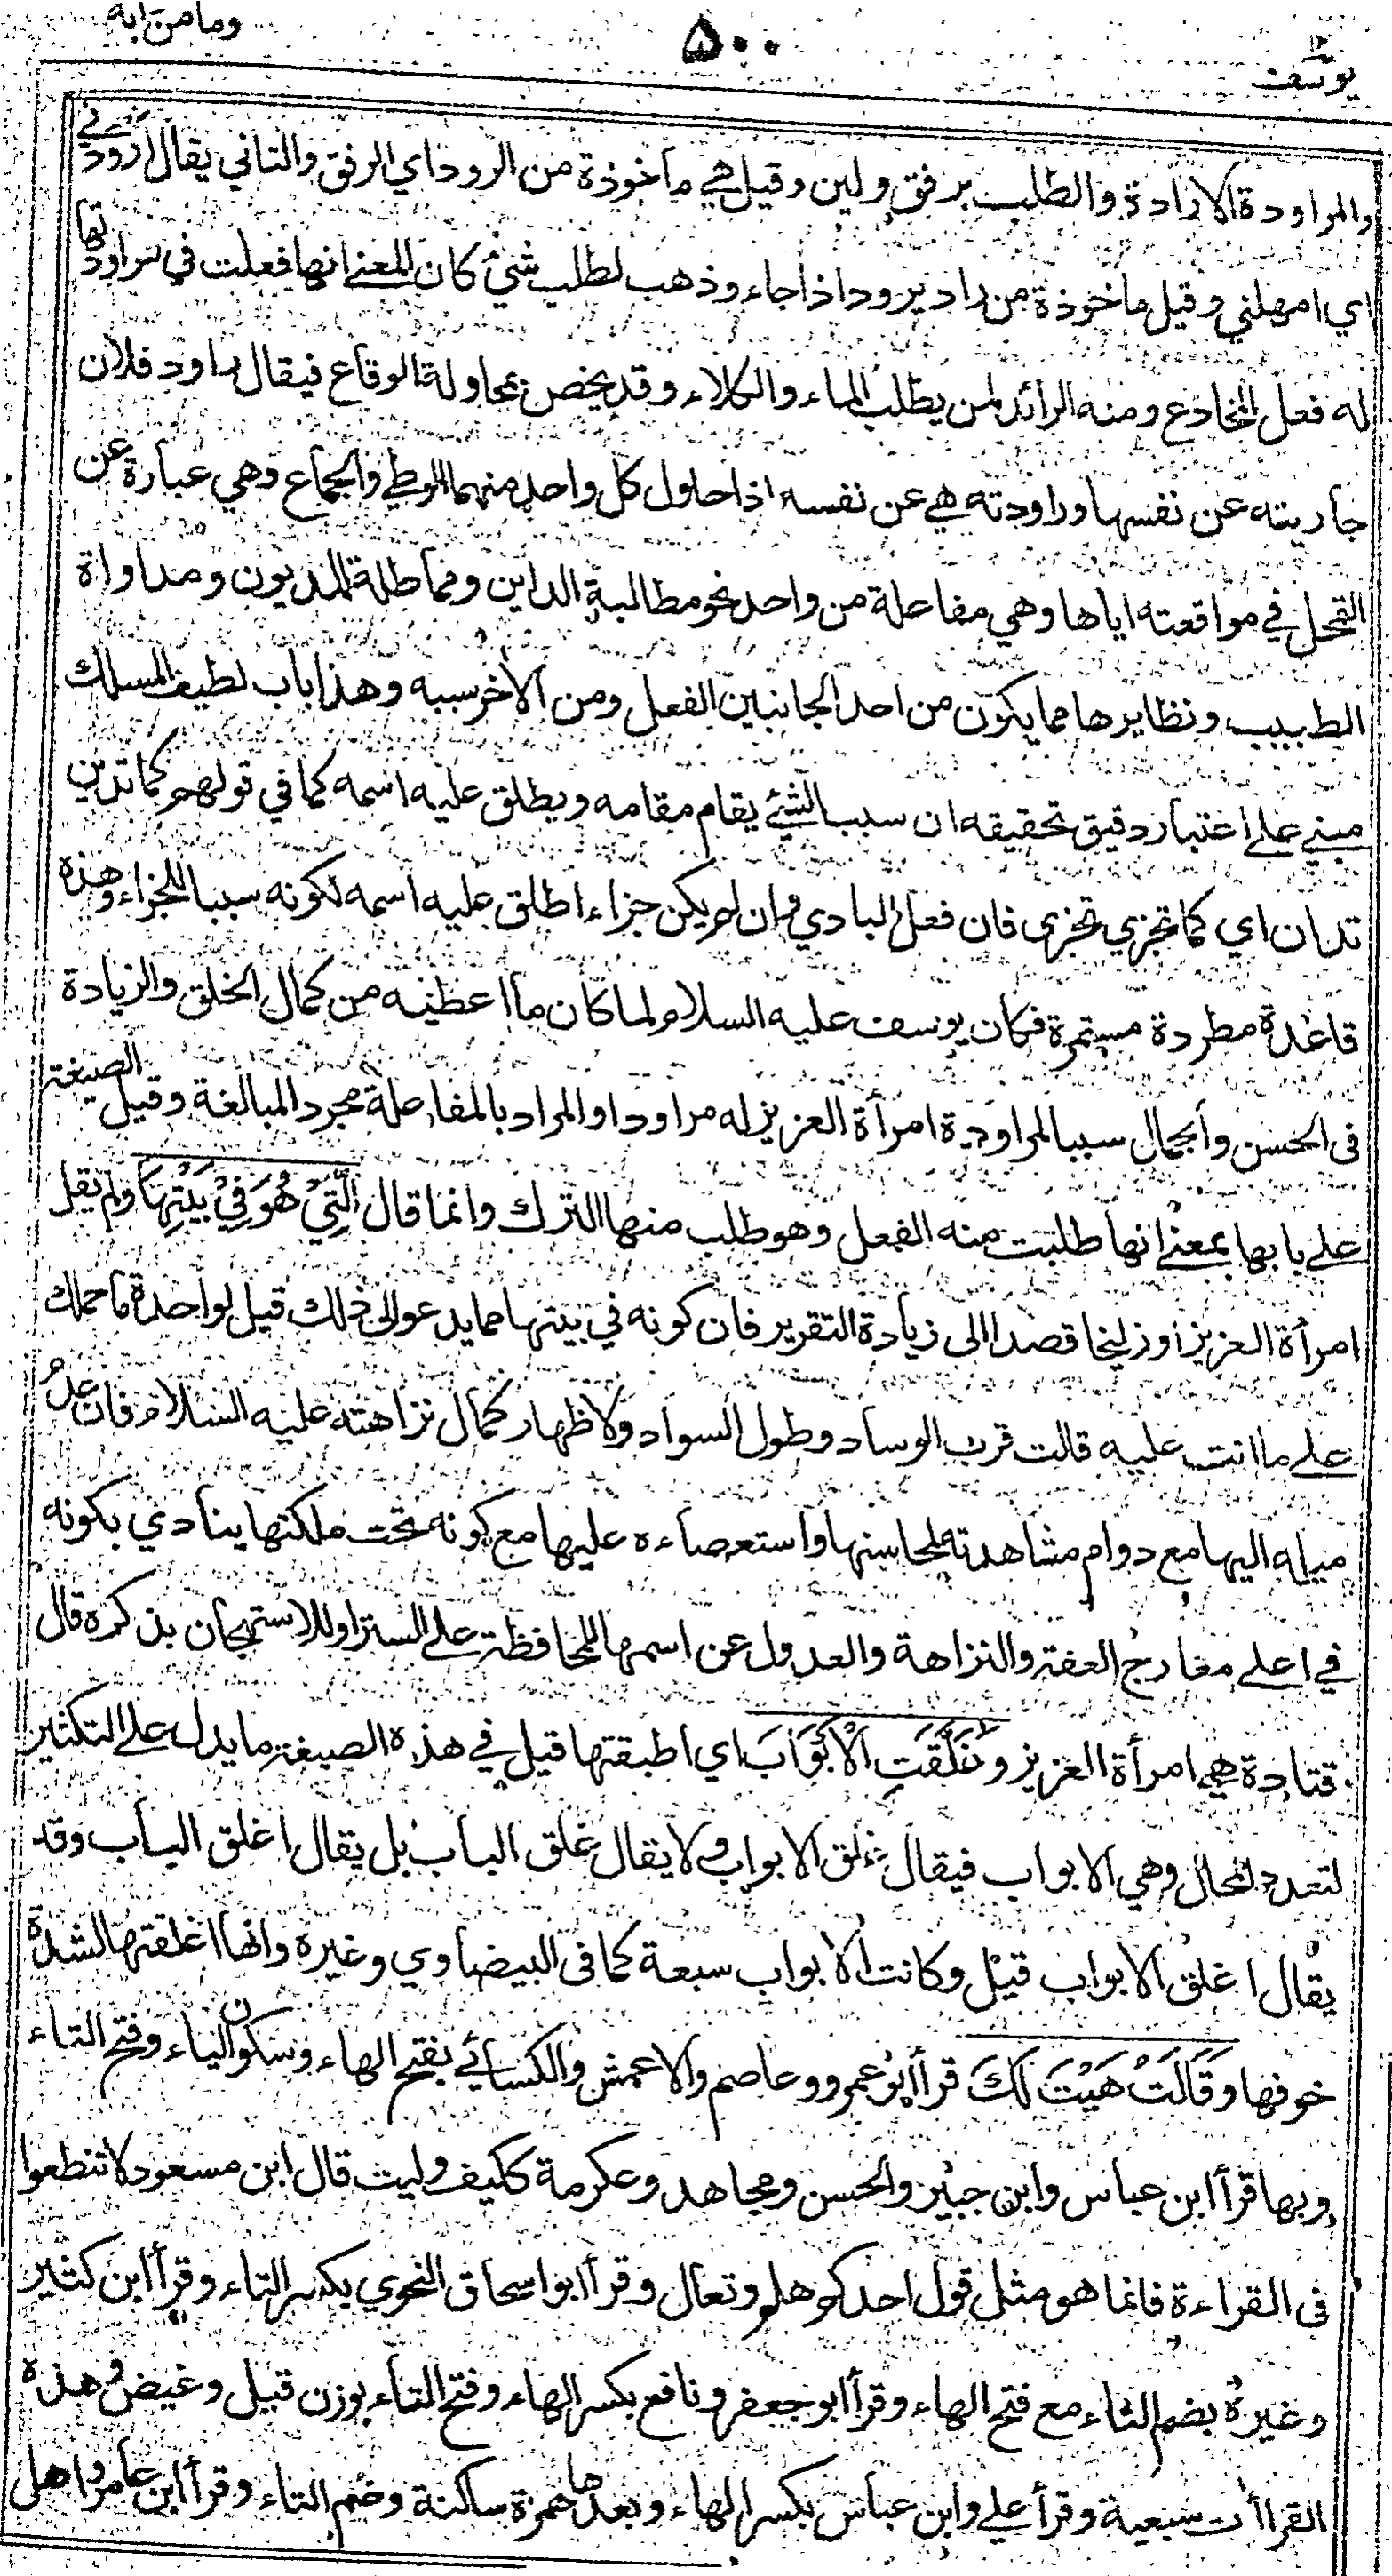 يوسف ٥٠٠ ومامن دابة
والمراودة الارادة والطلب برفق ولين وقيل هي مأخوذة من الرود اي الرفق والتاني يقال ارودني
اي امهلني وقيل ماخوذة من راد يرود اذا جاء وذهب لطلب شيئ كان المعنى انها فعلت في مراودتها
له فعل المخادع ومنه الرائد لمن يطلب الماء والكلاء وقد يخص بمحاولة الوقاع فيقال راود فلان
جاريته عن نفسها وراودته هي عن نفسه اذا حاول كل واحد منهما الوطي والجماع وهي عبارة عن
التمحل في مواقعته اياها وهي مفاعلة من واحد نحو مطالبة الداين ومماطلة المديون ومداواة
الطبيب ونظايرها مما يكون من احد الجانبين الفعل ومن الآخر سببه وهذا باب لطيف المسلك
مبني على اعتبار دقيق تحقيقه ان سبب الشيئ يقام مقامه ويطلق عليه اسمه كما في قولهم كما تدين
تدان اي كما تجزي تجزى فان فعل البادي وان لم يكن جزاء اطلق عليه اسمه لكونه سببا للجزاء وهذه
قاعدة مطردة مستمرة فكان يوسف عليه السلام لما كان ما اعطيه من كمال الخلق والزيادة
فى الحسن والجمال سببا لمراودة امرأة العزيز له مراودا والمراد بالمفاعلة مجرد المبالغة وقيل الصيغة
على بابها بمعنى انها طلبت منه الفعل وهو طلب منها الترك وانما قال الَّتِيْ هُوَ فِيْ بَيْتِهَا ولم يقل
امرأة العزيز او زليخا قصدا الى زيادة التقرير فان كونه في بيتها مما يدعو الى ذلك قيل لواحدة ما حملك
على ما انت عليه قالت قرب الوساد وطول السواد ولاظهار كمال نزاهته عليه السلام فان عدم
ميله اليها مع دوام مشاهدته لمحاسنها واستعصاءه عليها مع كونه تحت ملكتها ينادي بكونه
في اعلى معارج العفة والنزاهة والعدول عن اسمها للمحافظة على الستر او للاستهجان بذكره قال
قتادة هي امرأة العزيز وَغَلَّقَتِ الْاَبْوَابَ اي اطبقتها قيل في هذه الصيغة ما يدل على التكثير
لتعدد المحال وهي الابواب فيقال غلق الابواب ولا يقال غلق الباب بل يقال اغلق الباب وقد
يقال اغلق الابواب قيل وكانت الابواب سبعة كما فى البيضاوي وغيره وانها اغلقتها لشدة
خوفها وَقَالَتْ هَيْتَ لَكَ قرأ ابو عمرو وعاصم والاعمش والكسائي بفتح الهاء وسكون الياء وفتح التاء
وبها قرأ ابن عباس وابن جبير والحسن ومجاهد وعكرمة ككيف وليت قال ابن مسعود لا تنطعوا
فى القراءة فانما هو مثل قول احدكم هلم وتعال وقرأ ابو اسحاق النحوي بكسر التاء وقرأ ابن كثير
وغيره بضم التاء مع فتح الهاء وقرأ ابو جعفر ونافع بكسر الهاء وفتح التاء بوزن قيل وغيض وهذه
القراآت سبعية وقرأ علي وابن عباس بكسر الهاء وبعدها همزة ساكنة وضم التاء وقرأ ابن عامر واهل